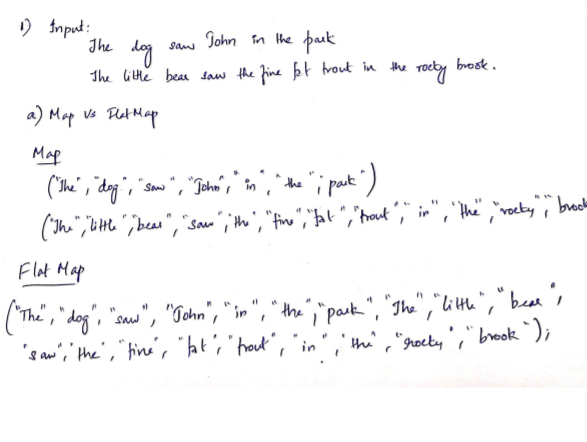 1) Input:
The dog saw John in the park
The little bear saw the fine fat trout in the rocky brook.
a) Map vs FlatMap
Map
("The", "dog", "saw", "John", "in", "the", "park")
("The", "little", "bear", "saw", "the", "fine", "fat", "trout", "in", "the", "rocky", "brook
Flat Map
("The", "dog", "saw", "John", "in", "the", "park", "The", "little", "bear",
"saw", "the", "fine", "fat", "trout", "in", "the", "rocky", "brook");